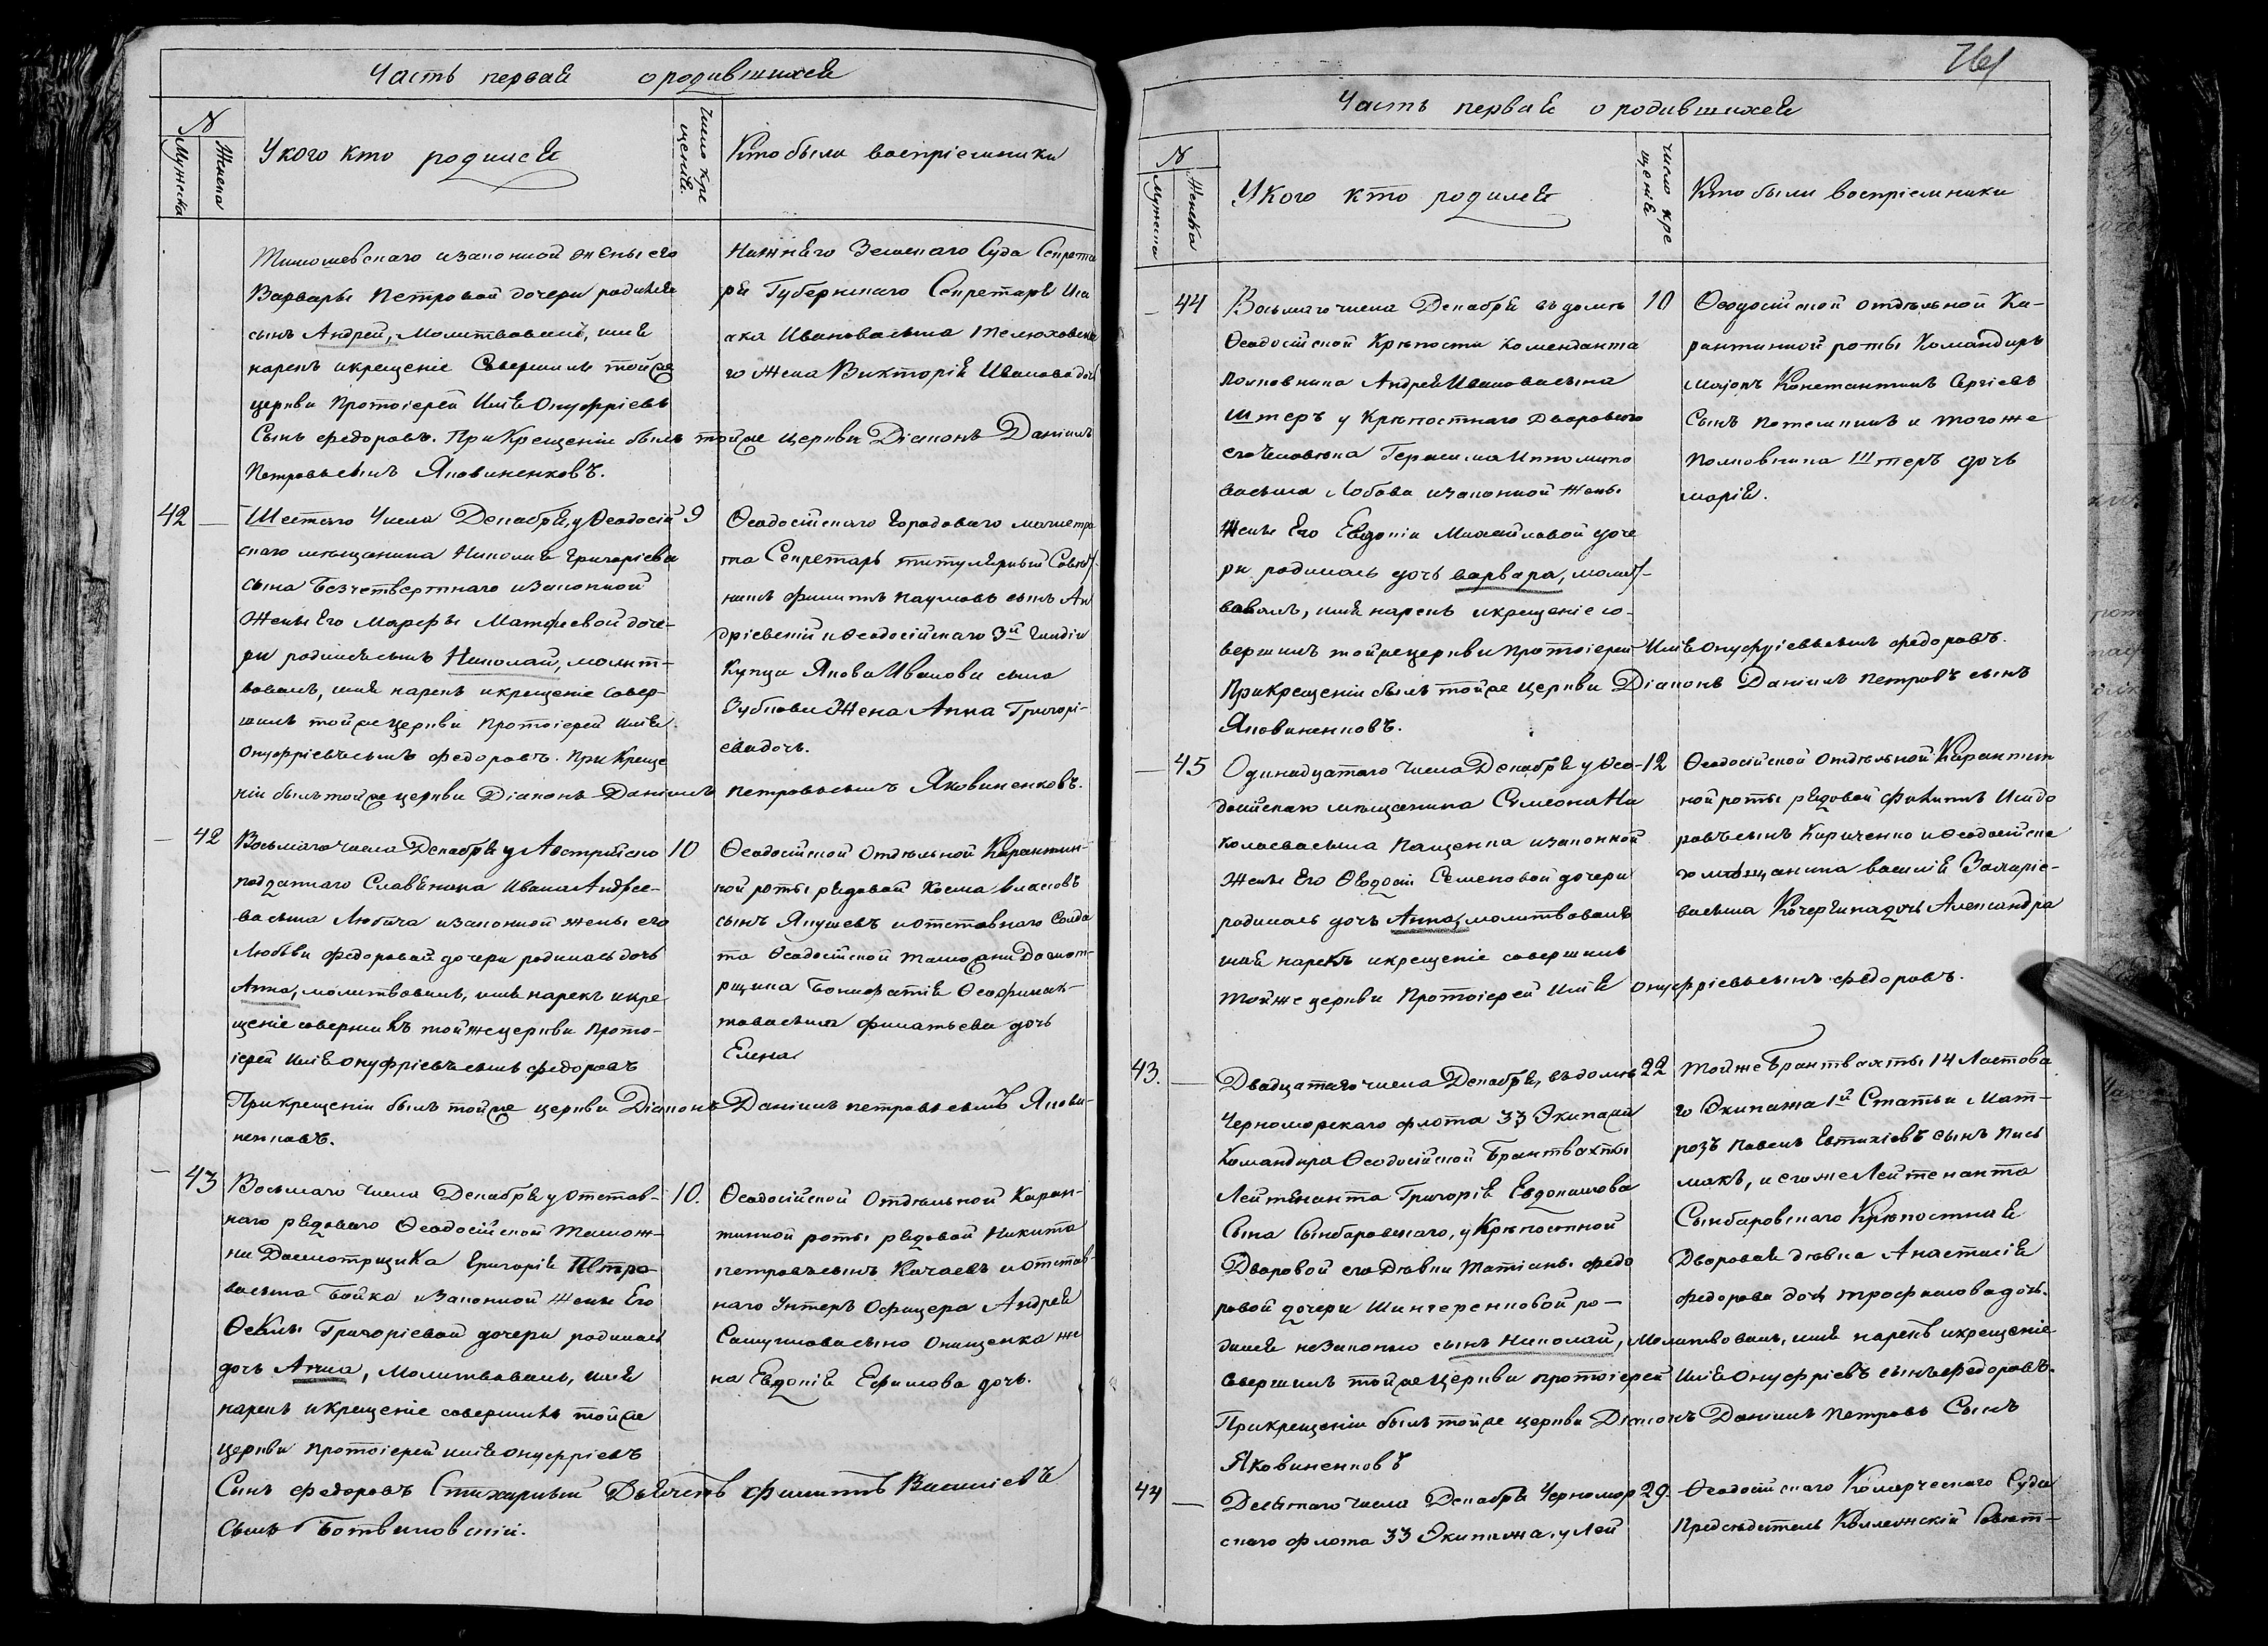 Часть первая о родившихся
N
Мужеска
Женска
У кого кто родился
Число кре
щенія.
Кто были воспріемники
Тимошевскаго и законной жены его
Варвары Петровой дочери родился
сынъ Андрей, Молитвовалъ, имя
нарекъ и крещеніе Совершилъ тойже
церкви Протоіерей Илія Онуфріевъ
Сынъ Федоровъ. При Крещеніи былъ тойже церкви Діаконъ Даніилъ
Петровъ сынъ Яковиненковъ.
Нижняго Земскаго Суда Секрета
ря Губернскаго Секретаря Иса
ака Иванова сына
го жена Викторія Иванова дочь
42 — Шестаго Числа Декабря, у Ѳеодосій 9
скаго мещанина Николая Григоріева
сына Безчетвертнаго и законной
Жены Его Марфы Матфіевой доче-
ри родился сынъ Николай, молит-
вовалъ, имя нарекъ и крещеніе совер-
шилъ тойже церкви Протоіерей Илія
Онуфріевъ сынъ Федоровъ. При Креще
ніи былъ тойже церкви Діаконъ Даніилъ Петровъ сынъ Яковиненковъ.
Ѳеодосійскаго Городоваго магистра
та Секретарь титулярный Совѣт-
никъ Филиппъ Наумовъ сынъ Ан
дріевскій и Ѳеодосійскаго 3й Гильдіи
Купца Якова Иванова сына
Зубкова Жена Анна Григорі-
ева дочь.
— 42 Восьмаго числа Декабря у Австрійско 10
подданнаго Славянина Ивана Андрее-
ва сына Любича и законной жены его
Любви Федоровой дочери родилась дочь
Анна, молитвовалъ, имя нарекъ и кре
щеніе совершилъ тойже церкви Прото-
іерей Илія Онуфріевъ сынъ Федоровъ
При крещеніи былъ тойже церкви Діаконъ Даніилъ Петровъ сынъ Якови-
ненковъ.
Ѳеодосійской Отдѣльной Карантин-
ной роты рядовой Косма Власовъ
сынъ Якушевъ и отставнаго Солда
та Ѳеодосійской таможни Досмот-
рщика Бонифатія Ѳеофилак-
това сына Филатьева дочь
Елена
— 43 Восьмаго Числа Декабря у отстав- 10.
наго рядоваго Ѳеодосійской Тамож-
ни Досмотрщика Григорія Петро
ва сына Бойко и Законной жены Его
Ѳеклы Григоріевой дочери родилась
дочь Анна, Молитвовалъ, имя
нарекъ и крещеніе совершилъ тойже
церкви Протоіерей Илія Онуфріевъ
Сынъ Федоровъ Стихарный Дьячекъ Филиппъ Василіевъ
сынъ Ботвиновскій.
Ѳеодосійской Отдѣльной Каран-
тинной роты рядовой Никита
Петровъ сынъ Качаевъ и отстав-
наго Унтеръ Офицера Андрея
Самуилова сына Онищенка же
на Евдокія Ефимова дочь.
761
Часть первая о родившихся
N
Мужеска
Женска
У кого кто родился
Число кре
щенія
Кто были воспріемники
— 44 Восьмаго числа Декабря въ домѣ 10
Ѳеодосійской Крѣпости Коменданта
Полковника Андрея Иванова сына
Штеръ у Крѣпостнаго Двороваго
его Человѣка Герасима Ипполито
ва сына Лобова и законной жены
Жены Его Евдокіи Михайловой доче
ри родилась дочь Варвара, молит-
вовалъ, имя нарекъ и крещеніе со-
вершилъ тойже церкви Протоіерей Илія Онуфріевъ сынъ Федоровъ.
При крещеніи былъ тойже церкви Діаконъ Даніилъ Петровъ сынъ
Яковиненковъ.
Ѳеодосійской отдѣльной Ка-
рантинной роты Командиръ
Маіоръ Константинъ Сергіевъ
Сынъ Потемкинъ и того же
Полковника Штеръ дочь
Марія.
— 45 Одинадцатаго Числа Декабря у Ѳео- 12
досійскаго мѣщанина Симеона Ни
колаева сына Пащенка и законной
Жены Его Ѳеодосіи Семеновой дочери
родилась дочь Анна, молитвовалъ
имя нарекъ и крещеніе совершилъ
тойже церкви Протоіерей Илія Онуфріевъ сынъ Федоровъ.
Ѳеодосійской Отдѣльной Карантин
ной роты рядовой Филиппъ Исидо
ровъ сынъ Кириченко и Ѳеодосійска
го мѣщанина Василія Захаріе-
ва сына Кочергина дочь Александра
43. — Двадцатаго числа Декабря, въ домѣ 22
Черноморскаго флота 33 Экипажа
Командира Ѳеодосійской Брантвахты
Лейтенанта Григорія Евдокимова
Сына Сынбаровскаго, у Крѣпостной
Дворовой его Дѣвки Татіаны Федо
ровой дочери Шингеренковой ро-
дился незаконно сынъ Николай, Молитвовалъ, имя нарекъ и крещеніе
Совершилъ тойже Церкви Протоіерей Илія Онуфріевъ сынъ Федоровъ.
При крещеніи былъ тойже церкви Діаконъ Даніилъ Петровъ Сынъ
Яковиненковъ
Тойже Брантвахты 14 Ластова
го Экипажа 1й Статьи Мат-
розъ Павелъ Евтихіевъ сынъ Пись
макъ, и его же Лейтенанта
Сынбаровскаго Крѣпостная
Дворовая дѣвка Анастасія
Федорова дочь Трофимова дочь.
44 — Десятаго числа Декабря Черномор 29.
скаго флота 33 Экипажа, у Лей
Ѳеодосійскаго Комерческаго Суда
Предсѣдатель Коллежскій Совѣт-